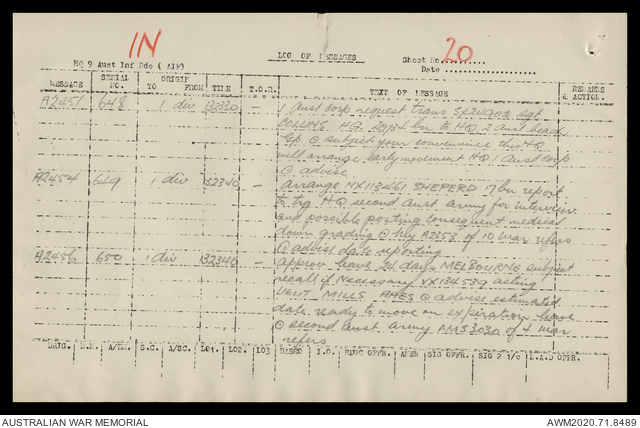 IN
20
LOG OF MESSAGES
Sheet No.
HQ 9 Aust Inf Bde ( AIF)
Date
MESSAGE SERIAL NO. ORIGIN TO FROM TILE T.O.R. TEXT OF MESSAGE REMARKS & ACTION.
A2451 648 1 div 132330 — 1 Aust corp request trans SX24202 Sgt
COLLINS HG 30/34 bn to HQ 2 Aust beach
Gp @ subject your convenience this HQ
will arrange early movement HQ 1 Aust Corp
@ advise
A2454 649 1 div 132340 — arrange NX113461 SHEPERD 17 bn report
to trg HQ second aust army for interview
and possible posting consequent medical
down grading @ my A2353 of 10 mar refers
@ advise date reporting
A2456 650 1 div 132340 — approve leave 24 days MELBOURNE subject
recall if necessary VX134539 acting
LIEUT MILLS @ advise estimated
date ready to move on expiration leave
@ second aust army of 4 mar
refers
BRIG. B.M. S.C. LO1. LO2. LO3 I.O. SIG OFFR.
AUSTRALIAN WAR MEMORIAL
AWM2020.71.8489